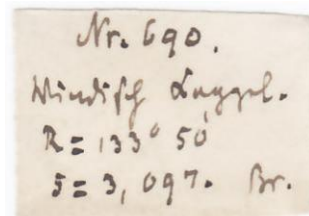 Nr. 690.
Windisch Kappel.
R = 133° 50'
S = 3,097. Br.